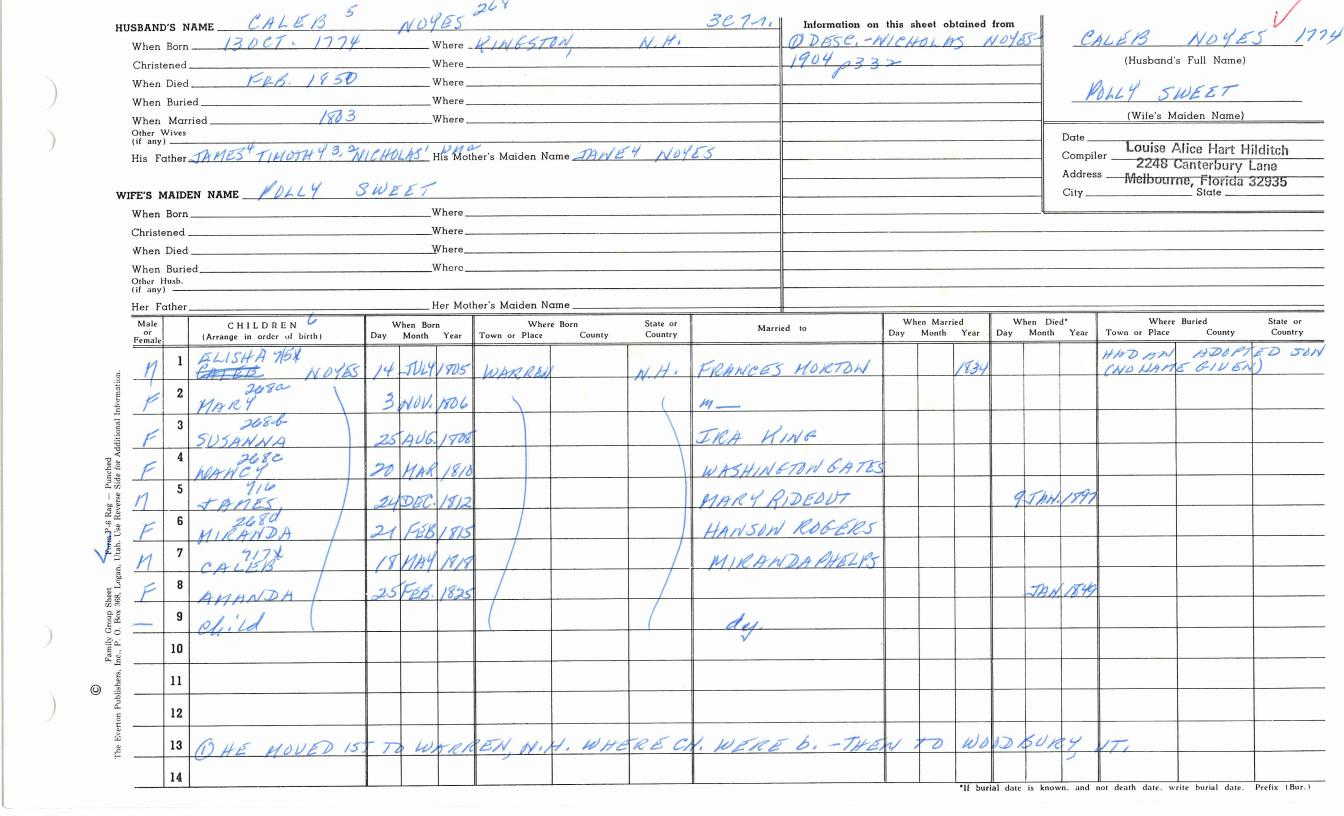 HUSBAND'S NAME CALEB 5 NOYES 264 3C7n.
When Born 13 OCT. 1774 Where KINGSTON, N.H.
Christened Where
When Died FEB. 1850 Where
When Buried Where
When Married 1803 Where
Other Wives
(if any)
His Father JAMES4 TIMOTHY3,2 NICHOLAS1 His Mother's Maiden Name JANE4 NOYES
WIFE'S MAIDEN NAME POLLY SWEET
When Born Where
Christened Where
When Died Where
When Buried Where
Other Husb.
(if any)
Her Father Her Mother's Maiden Name
Information on this sheet obtained from
① DESC.-NICHOLAS NOYES
1904 p332
CALEB NOYES 1774
(Husband's Full Name)
POLLY SWEET
(Wife's Maiden Name)
Date
Compiler Louise Alice Hart Hilditch
Address 2248 Canterbury Lane
Melbourne, Florida 32935
City State
Male or Female CHILDREN 6 (Arrange in order of birth) When Born Day Month Year Where Born Town or Place County State or Country Married to When Married Day Month Year When Died* Day Month Year Where Buried Town or Place County State or Country
M 1 ELISHA 715x CALEB NOYES 14 JULY 1805 WARREN N.H. FRANCES MORTON 1834 HAD AN ADOPTED SON (NO NAME GIVEN)
F 2 268a MARY 3 NOV. 1806 m—
F 3 268b SUSANNA 25 AUG. 1808 IRA KING
F 4 268c NANCY 20 MAR 1810 WASHINGTON GATES
M 5 716 JAMES 24 DEC. 1812 MARY RIDEOUT 9 JAN. 1897
F 6 268d MIRANDA 21 FEB 1815 HANSON ROGERS
M 7 717x CALEB 18 MAY 1818 MIRANDA PHELPS
F 8 AMANDA 25 FEB. 1825 JAN. 1849
— 9 child dy.
10
11
12
13 ① HE MOVED 1ST TO WARREN, N.H. WHERE CH. WERE b. -THEN TO WOODBURY, VT.
14
*If burial date is known, and not death date, write burial date. Prefix (Bur.)
© Family Group Sheet Form P-6 Rag — Punched
The Everton Publishers, Inc., P. O. Box 368, Logan, Utah. Use Reverse Side for Additional Information.